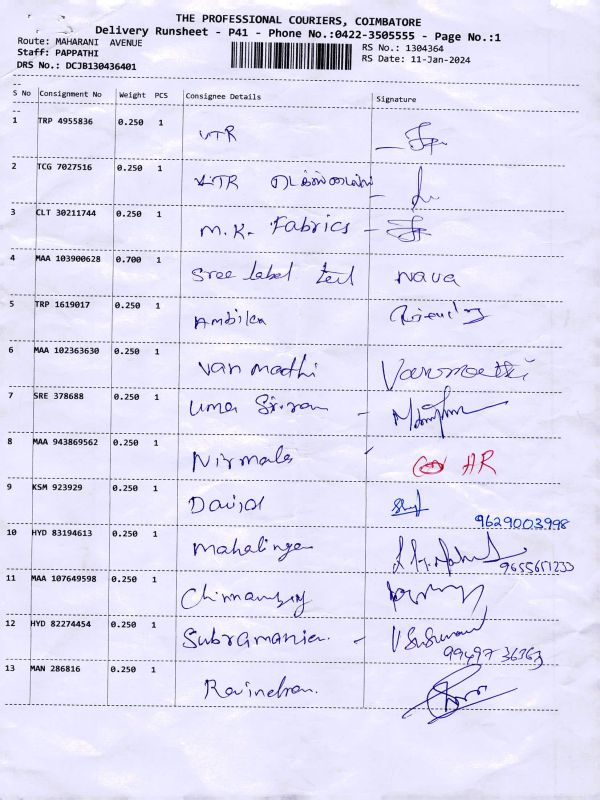 THE PROFESSIONAL COURIERS, COIMBATORE
Delivery Runsheet - P41 - Phone No.:0422-3505555 - Page No.:1
Route: MAHARANI AVENUE
RS No.: 1304364
Staff: PAPPATHI
RS Date: 11-Jan-2024
DRS No.: DCJB130436401
S No Consignment No Weight PCS Consignee Details Signature
1 TRP 4955836 0.250 1 UTR
2 TCG 7027516 0.250 1 UTR
3 CLT 30211744 0.250 1 M.K. Fabrics -
4 MAA 103900628 0.700 1 Sree label Text Nava
5 TRP 1619017 0.250 1 Ambika
6 MAA 102363630 0.250 1 Van mathi Vanmathi
7 SRE 378688 0.250 1 Uma Sriram -
8 MAA 943869562 0.250 1 Nirmala AR
9 KSM 923929 0.250 1 9629003998
10 HYD 83194613 0.250 1 Mahalinga 9655651233
11 MAA 107649598 0.250 1
12 HYD 82274454 0.250 1 Subramanian - 99497 36363
13 MAN 286816 0.250 1 Ravindran.